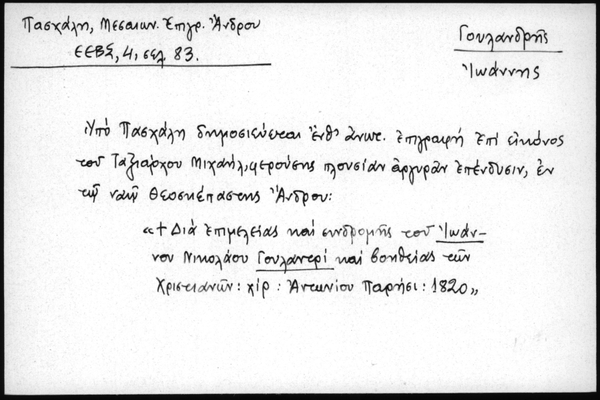 Πασχάλη, Μεσαιων. Ἐπιγρ. Ἄνδρου
ΕΕΒΣ, 4, σελ. 83.
Γουλανδρῆς
Ἰωάννης
Ὑπό Πασχάλη δημοσιεύεται ἔνθ' ἀνωτ. ἐπιγραφή ἐπί εἰκόνος
τοῦ Ταξιάρχου Μιχαήλ, φερούσης πλουσίαν ἀργυρᾶν ἐπένδυσιν, ἐν
τῷ ναῷ Θεοσκεπάστης Ἄνδρου:
«+ Διά ἐπιμελείας καί συνδρομῆς τοῦ Ἰωάν-
νου Νικολάου Γουλανδρί καί βοηθείας τῶν
Χριστιανῶν: χίρ: Ἀντωνίου Παρήσι: 1820»